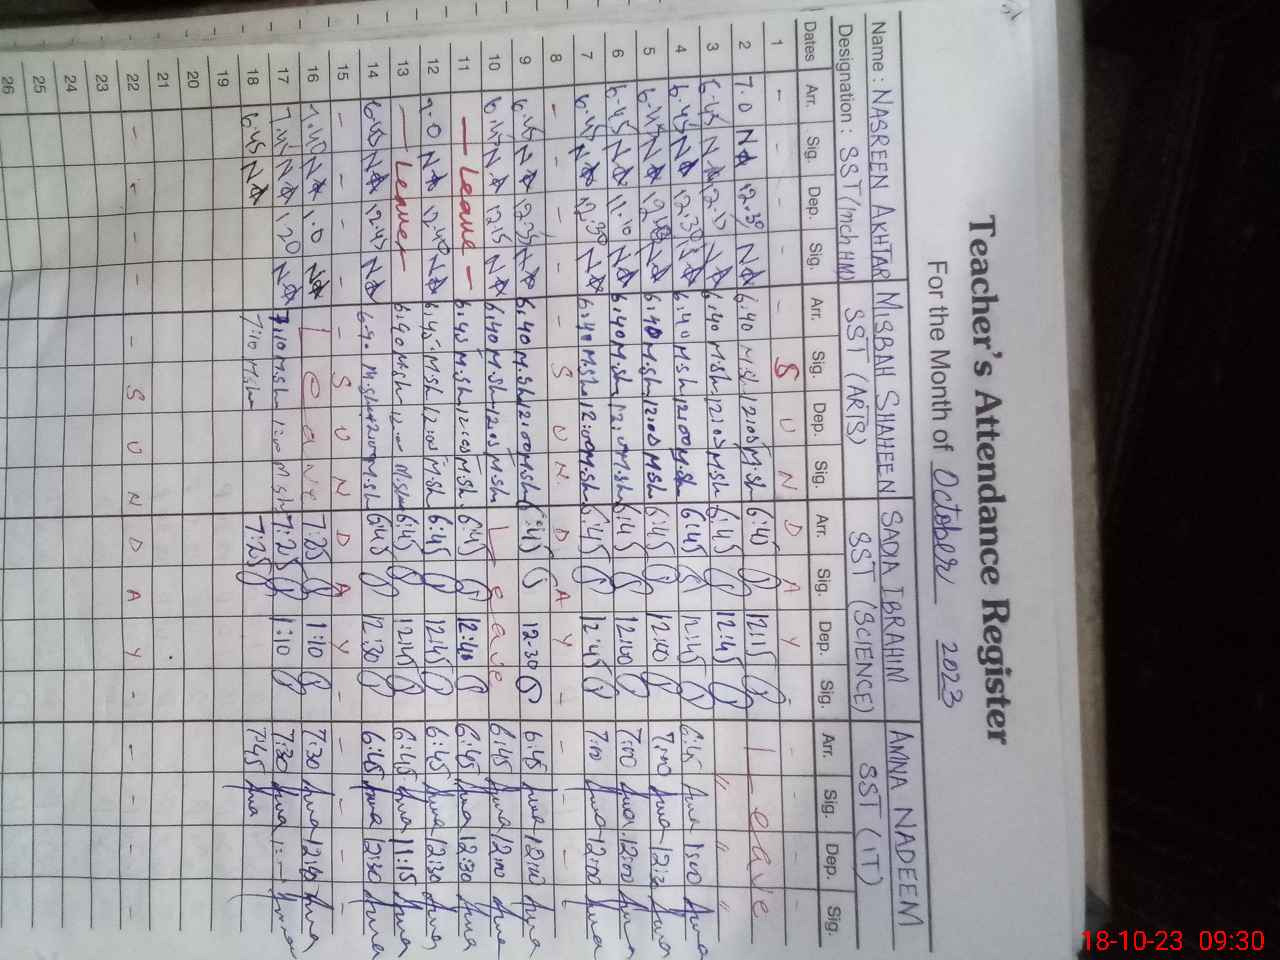 Teacher's Attendance Register
For the Month of October 2023
Name : NASREEN AKHTAR MISBAH SHAHEEN SADIA IBRAHIM AMNA NADEEM
Designation : SST (Inch HM) SST (ARTS) SST (SCIENCE) SST (IT)
Dates Arr. Sig. Dep. Sig. Arr. Sig. Dep. Sig. Arr. Sig. Dep. Sig. Arr. Sig. Dep. Sig.
1 - - - - - S U N D A Y - - - - -
2 7.0 12.30 6:40 M.sh 12:05 M.sh 6:40 12:15 Leave
3 6.45 6:40 M.sh 12:05 M.sh 6:45 12:45 " " "
4 6.45 12.30 6:40 M.sh 12:00 M.sh 6:45 12:45 6:45 Amna Amna
5 6.45 6:40 M.sh 12:05 M.sh 6:45 12:40 7:00 Amna Amna
6 6.45 11.10 6:40 M.sh 12:00 M.sh 6:45 12:40 7:00 Amna 12:00 Amna
7 6.45 12.30 6:40 M.sh 12:00 M.sh 6:45 12:45 7:00 Amna 12:00 Amna
8 - - - - - S U N D A Y - - - - -
9 6.45 6:40 M.sh 12:00 M.sh 6:45 12:30 6:45 Amna 12:00 Amna
10 6.45 12.15 6:40 M.sh 12:05 M.sh Leave 6:45 Amna 12:00 Amna
11 — Leave — 6:45 M.sh 12:05 M.sh 6:45 12:40 6:45 Amna 12:30 Amna
12 7.0 12.40 6:45 M.sh 12:05 M.sh 6:45 12:45 6:45 Amna 12:30 Amna
13 — Leave — 6:40 M.sh 12:00 M.sh 6:45 12:45 6:45 Amna 11:15 Amna
14 6.45 12.45 6:40 M.sh 12:00 M.sh 6:45 12:30 6:45 Amna 12:30 Amna
15 - - - - - S U N D A Y - - - - -
16 7.40 1.0 Leave 7:25 1:10 7:30 Amna 12:40 Amna
17 1.20 7:10 M.sh 1:00 M.sh 7:25 1:10 7:30 Amna Amna
18 6.45 7:10 M.sh 7:25 7:45 Amna
19
20
21
22 - - - - - S U N D A Y - - - - -
23
24
25
26
18-10-23 09:30